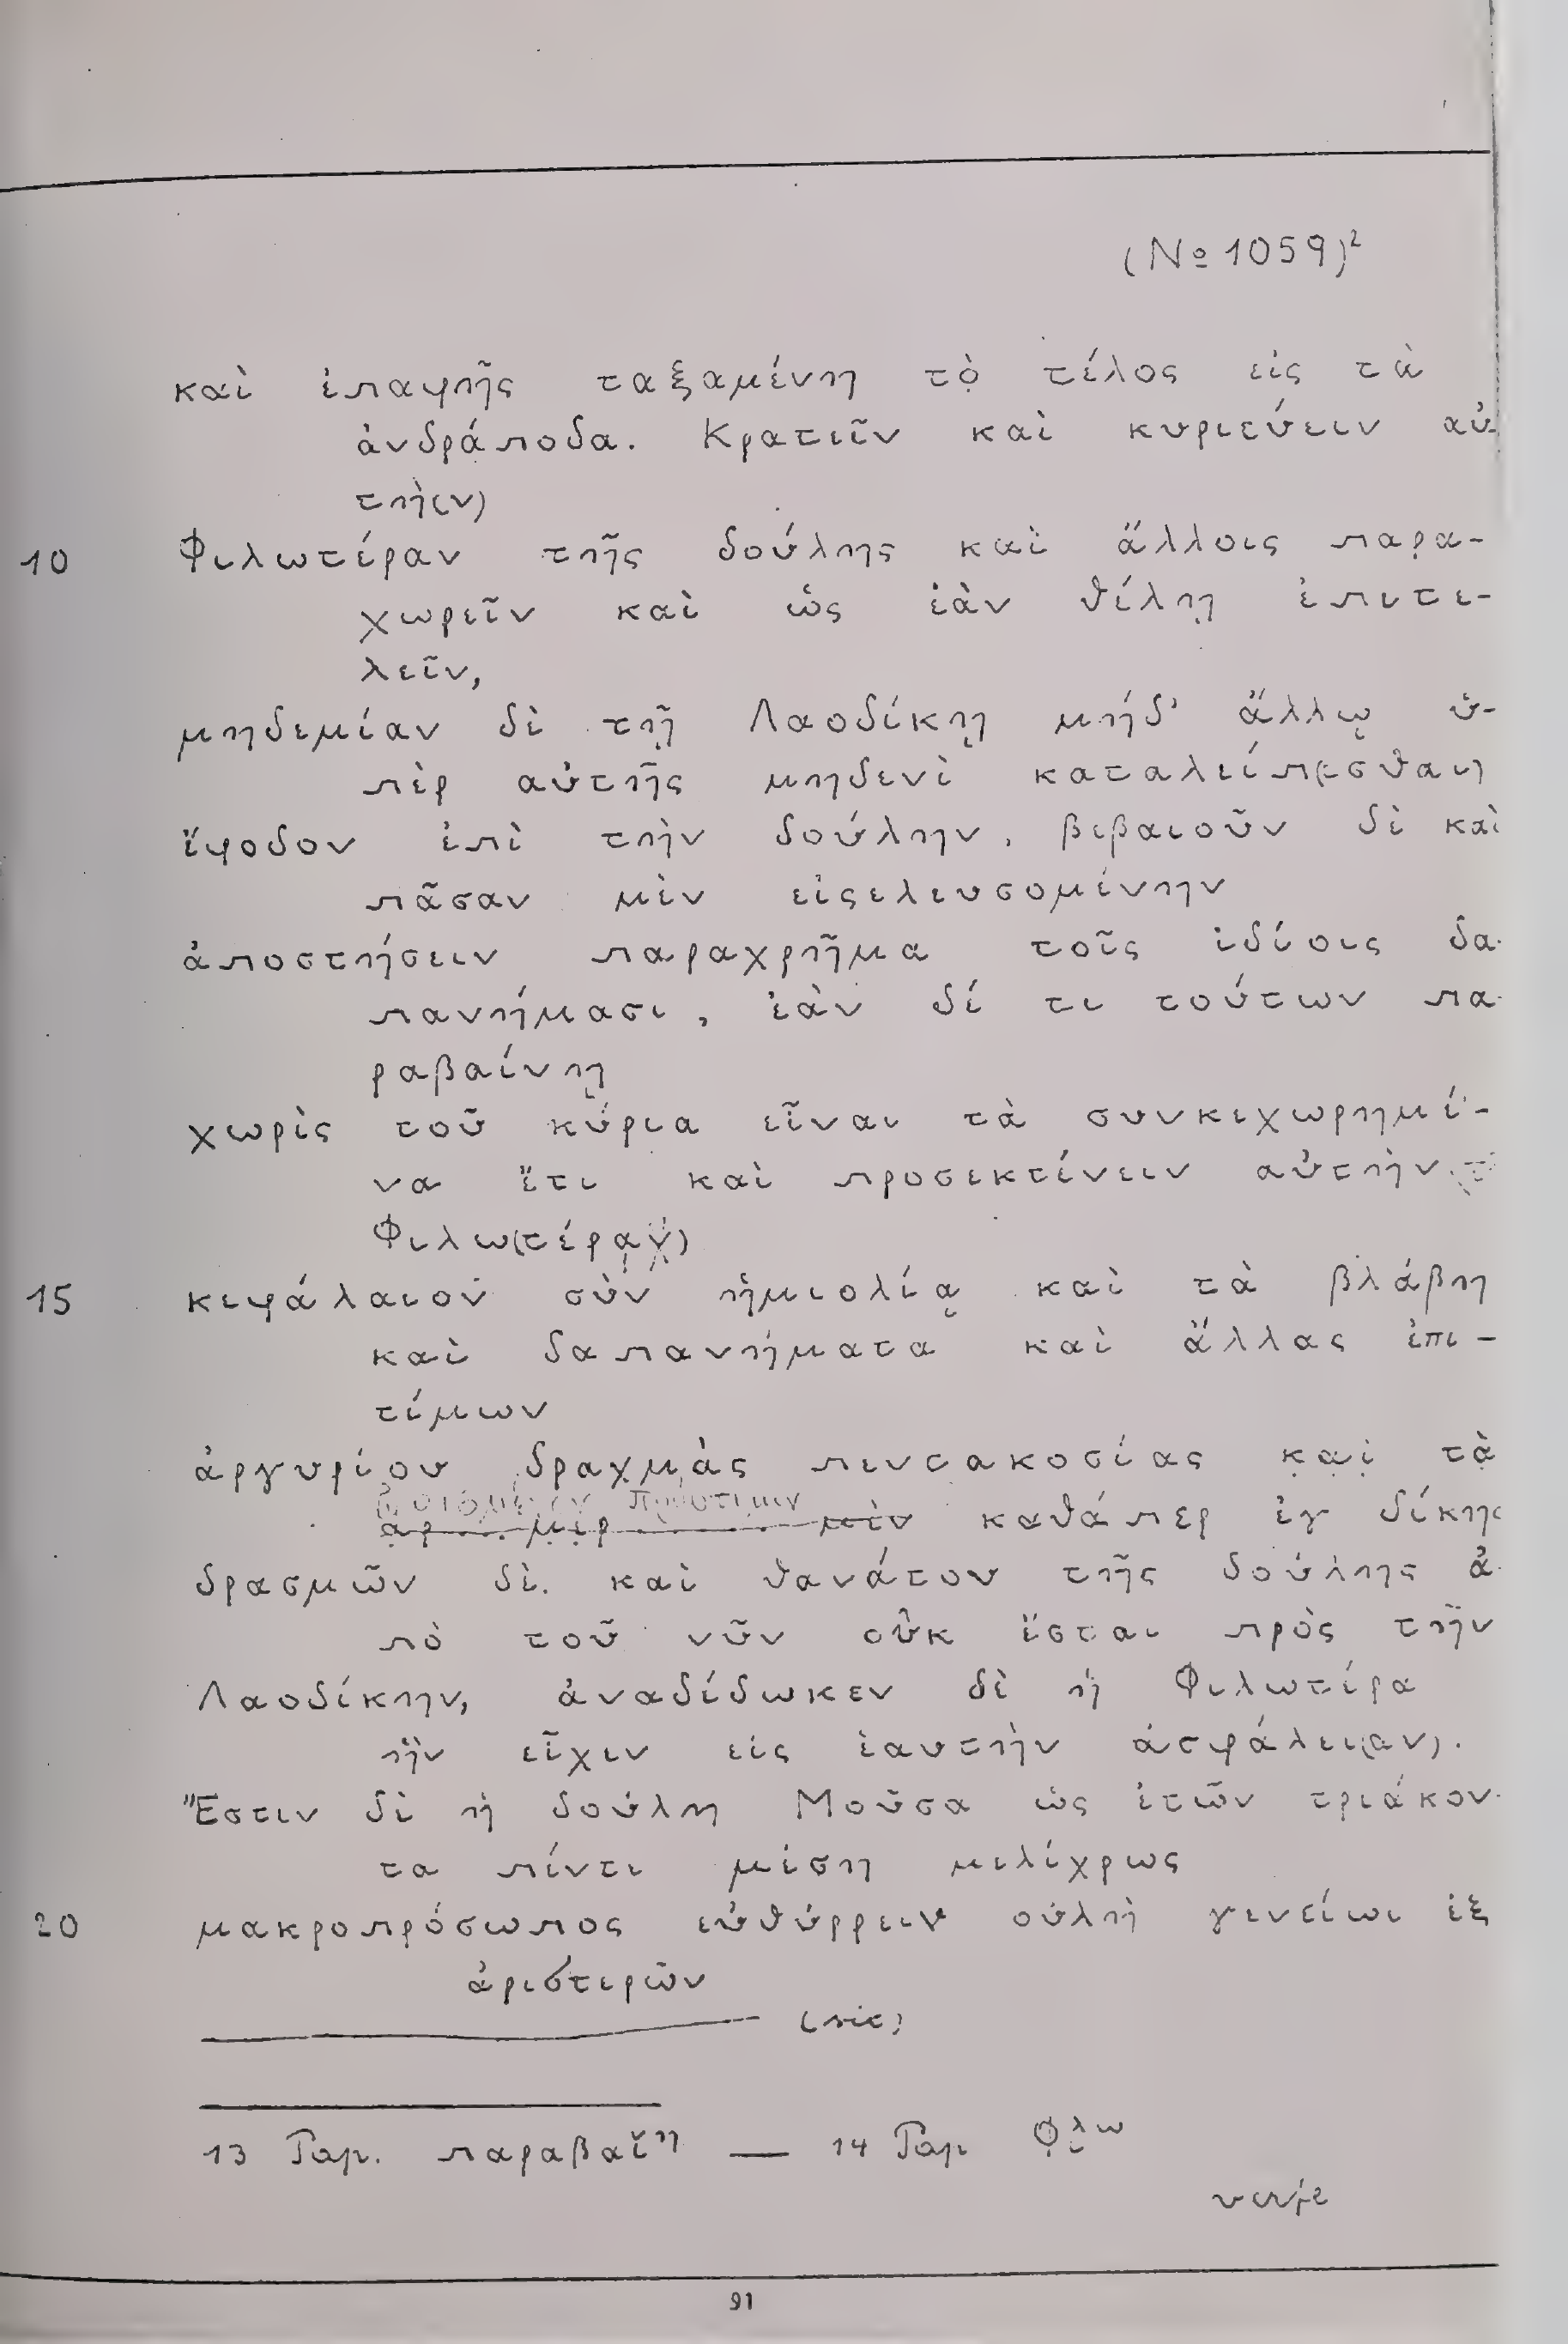 (№ 1059)²
καὶ ἐπαφῆς ταξαμένη τὸ̣ τέλος εἰς τὰ
ἀνδράποδα. Κρατεῖν καὶ κυριεύειν αὐ-
τὴ(ν)
10 Φιλωτέραν τῆς δούλης καὶ ἄλλοις παρα-
χωρεῖν καὶ ὡς ἐὰν θέλῃ ἐπιτε-
λεῖν,
μηδεμίαν δὲ τῇ Λαοδίκῃ μήδ' ἄλλῳ ὑ-
πὲρ αὐτῆς μηδενὶ καταλείπ(εσθαι)
ἔφοδον ἐπὶ τὴν δούλην, βεβαιοῦν δὲ καὶ
πᾶσαν μὲν εἰςελευσομένην
ἀποστήσειν παραχρῆμα τοῖς ἰδίοις δα-
πανήμασι, ἐὰν δέ τι τούτων πα-
ραβαίνῃ
χωρὶς τοῦ κύρια εἶναι τὰ συνκεχωρημέ-
να ἔτι καὶ προσεκτίνειν αὐτὴν
Φιλω(τέραν)
15 κεφάλαιον σὺν ἡμιολίᾳ καὶ τὰ βλάβη
καὶ δαπανήματα καὶ ἄλλας ἐπι-
τίμων
ἀργυρίου δραχμὰς πεντακοσίας κ̣α̣ὶ̣ τ̣ὰ̣
πρόστιμον
μὲν καθάπερ ἐγ δίκης
δρασμῶν δὲ. καὶ θανάτου τῆς δούλης ἀ-
πὸ τοῦ νῦν οὐκ ἔσται πρὸς τὴν
Λαοδίκην, ἀναδέδωκεν δὲ ἡ Φιλωτέρα
ἣν εἶχεν εἰς ἑαυτὴν ἀσφάλει(αν).
Ἔστιν δὲ ἡ δούλη Μοῦσα ὡς ἐτῶν τριάκον-
τα πέντε μέση μελίχρως
20 μακροπρόσωπος εὐθύρρειν οὐλὴ γενείωι ἐξ
ἀριστερῶν
(sic)
13 Pap. παραβαΐ^η — 14 Pap Φιλ^ω
91